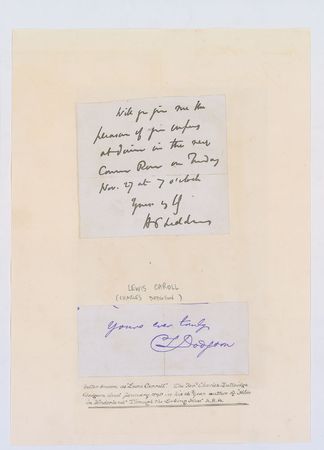 Will you give me the
pleasure of your company
at dinner in the new
Common Room on Tuesday
Nov. 27 at 7 o'clock
Yours
H P Liddon
LEWIS CAROLL
(CHARLES DODGSON)
Yours ever truly,
CL Dodgson
better known as "Lewis Carroll". The Revd. Charles Lutwidge
Dodgson died January 1898 in his 66th year author of "Alice
in Wonderland" "Through the Looking Glass"